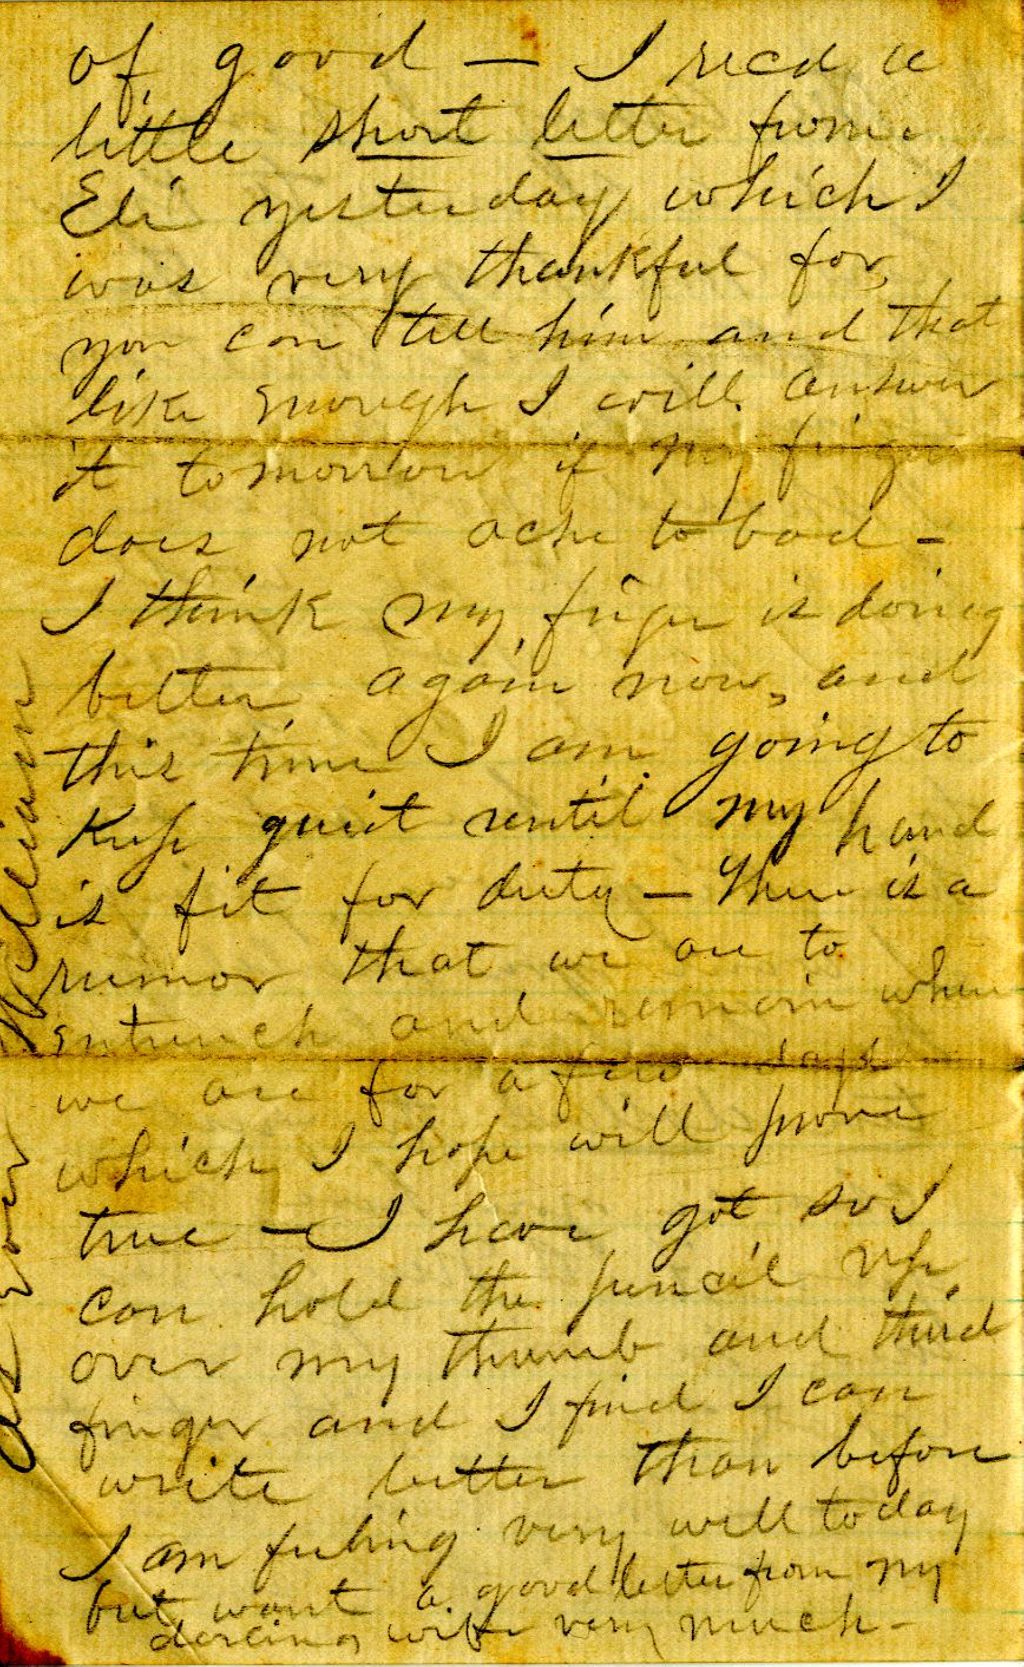 of good — I recd a
little short letter from
Eli yesterday which I
was very thankful for,
you can tell him and that
like enough I will answer
it tomorrow if my finger
does not ache to bad —
I think my finger is doing
better again now, and
this time I am going to
keep quiet until my hand
is fit for duty — There is a
rumor that we are to
entrench and remain where
we are for a few days
which I hope will prove
true — I have got so I
can hold the pencil up
over my thumb and third
finger and I find I can
write better than before
I am feeling very well to day
but want a good letter from my
darling wife very much —
William